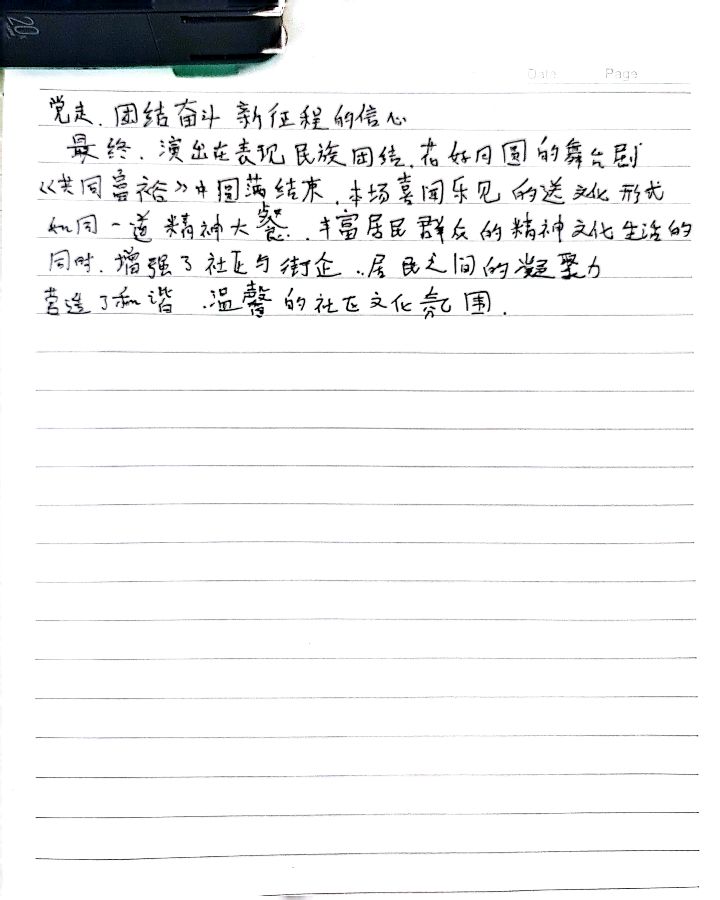 Date Page
党走、团结奋斗新征程的信心
最终、演出在表现民族团结、花好月圆的舞台剧
《共同富裕》中圆满结束、本场喜闻乐见的送文化形式
如同一道精神大餐、丰富居民群众的精神文化生活的
同时、增强了社区与街企、居民之间的凝聚力
营造了和谐、温馨的社区文化氛围.